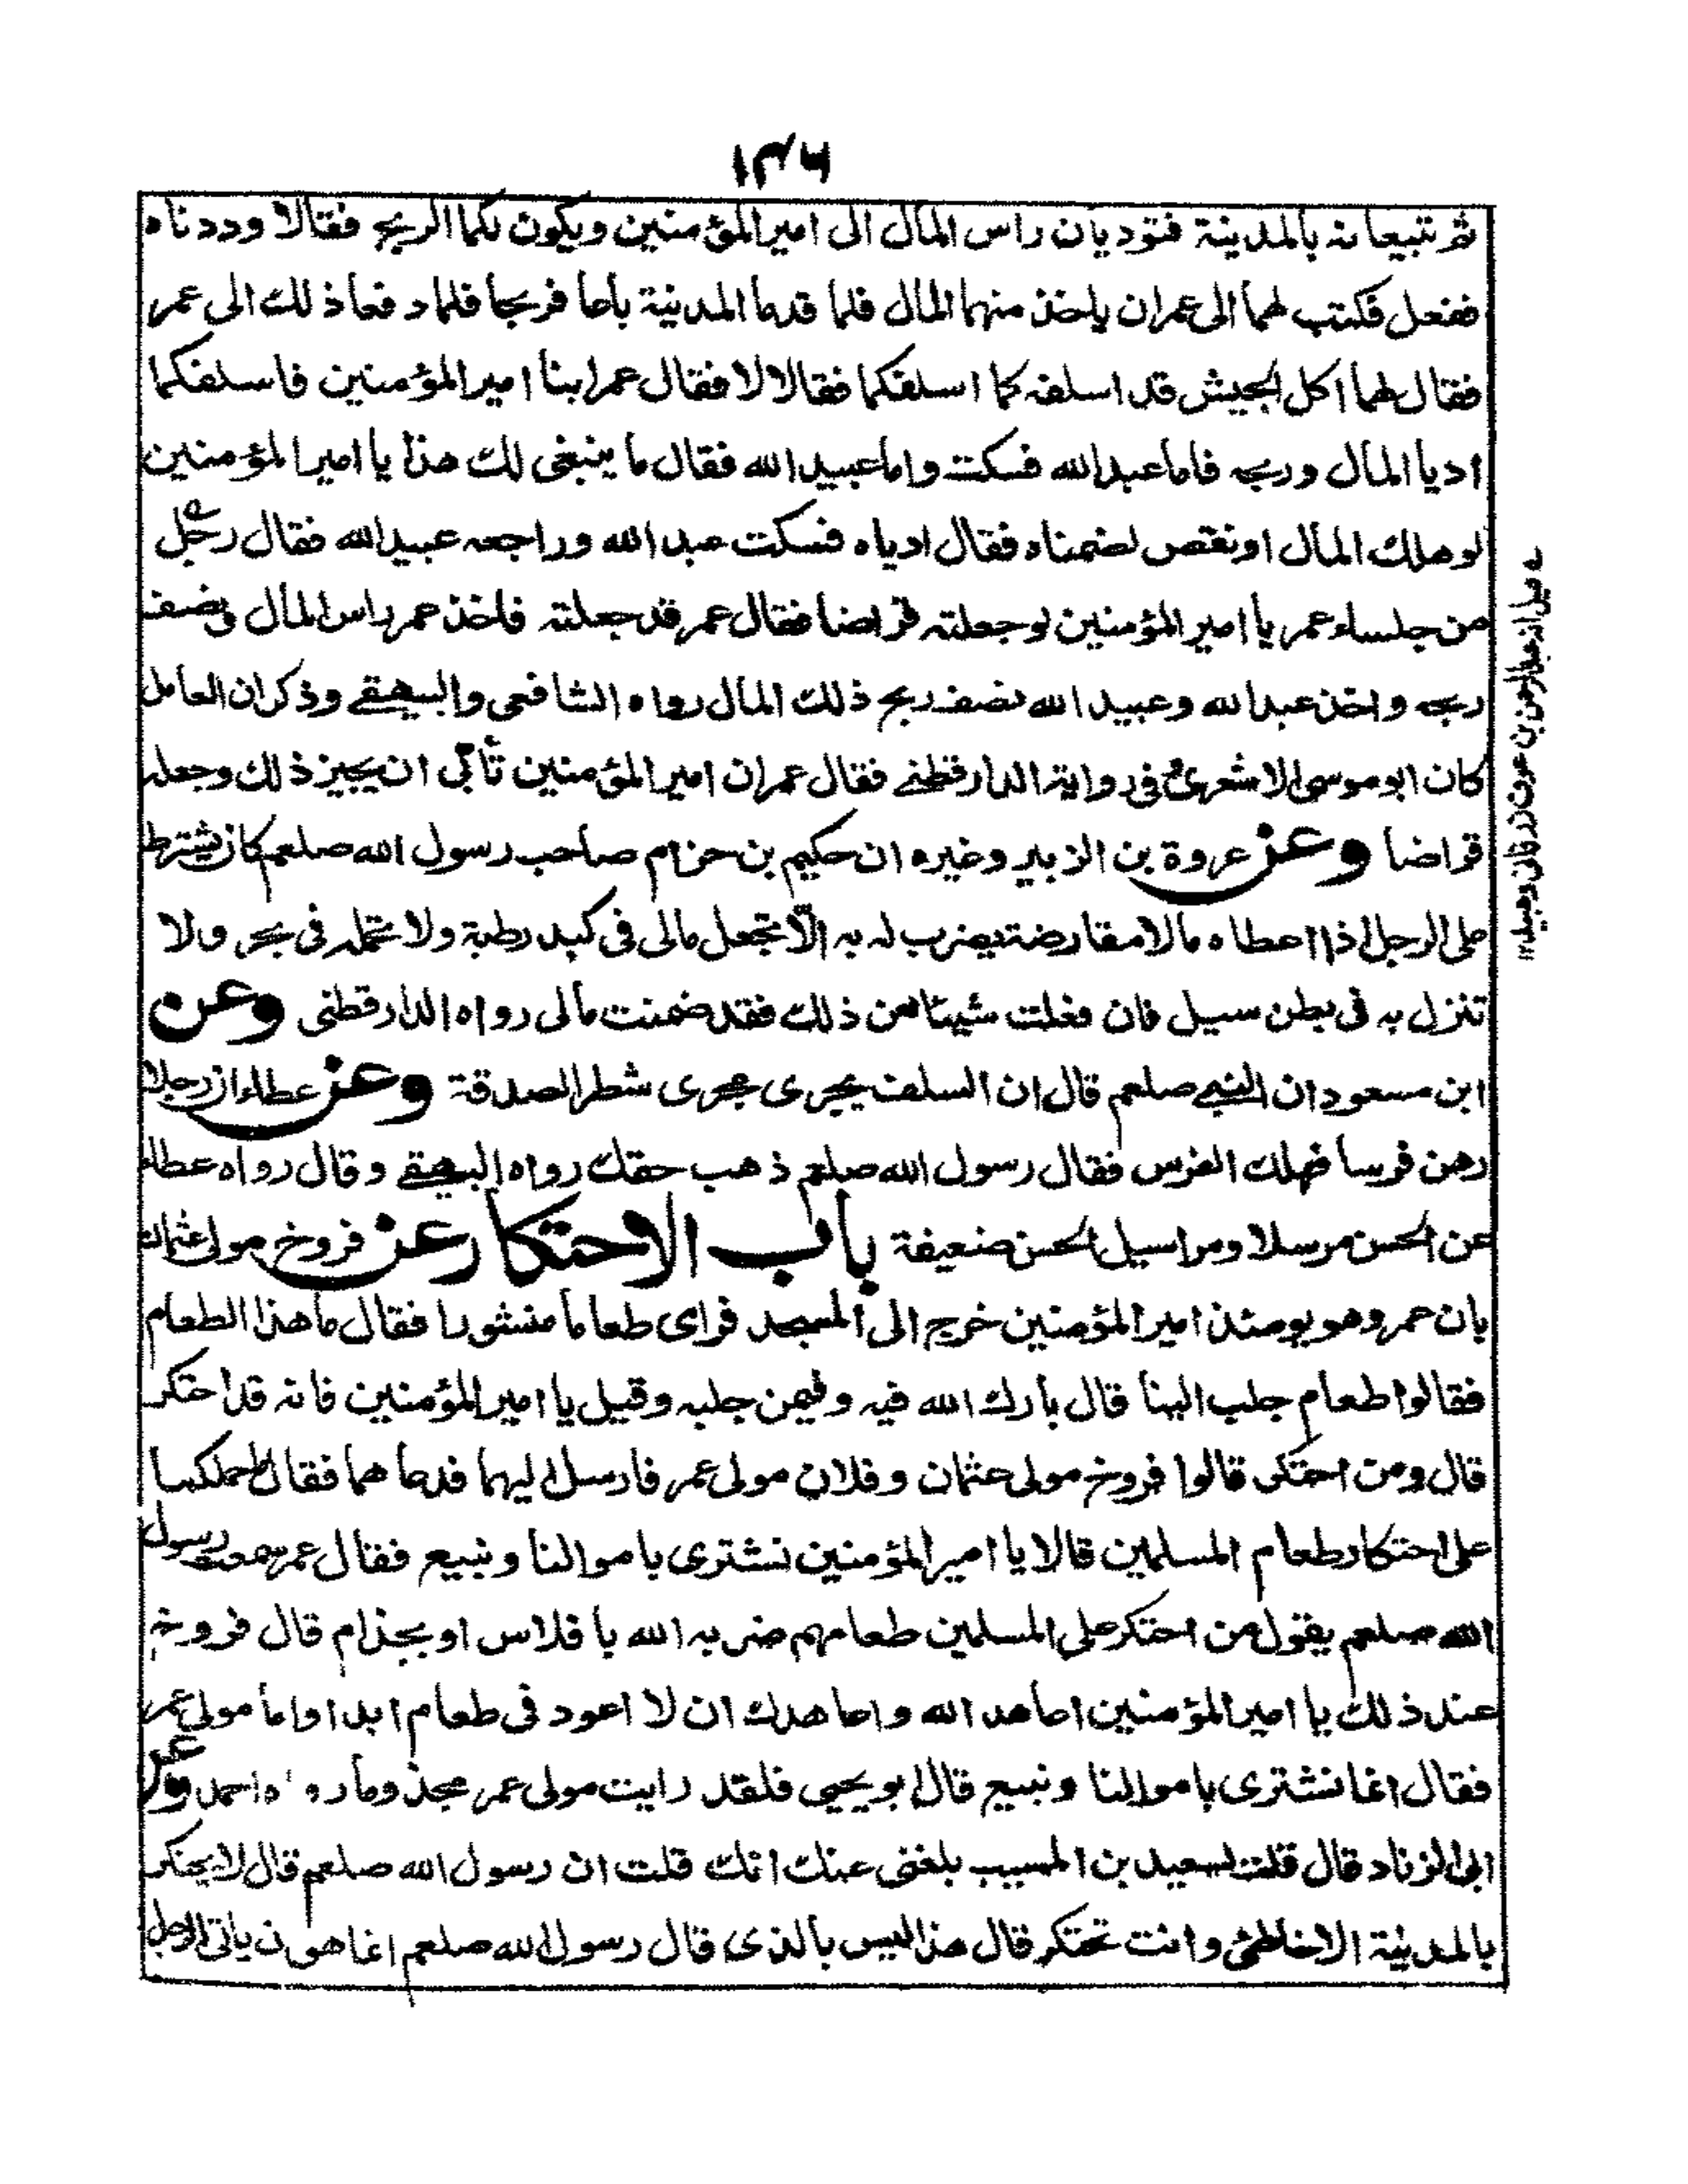 ١٣٦
ثم تتبيعانه بالمدينة فتوديان راس المال الى امير المؤمنين ويكون لكما الربح فقالا وددناه
ففعل فكتب لهما الى عمر ان ياخذ منهما المال فلما قدما المدينة باعا فربحا فلما دفعا ذلك الى عمر
فقال لهما اكل الجيش قد اسلفه كما اسلفكما فقالا لا فقال عمر ابنا امير المؤمنين فاسلفكما
اديا المال وربحه فاما عبد الله فسكت واما عبيد الله فقال ما ينبغى لك هذا يا امير المؤمنين
لو هلك المال او نقص لضمناه فقال ادياه فسكت عبد الله وراجعه عبيد الله فقال رجل
من جلساء عمر يا امير المؤمنين لو جعلته قراضا فقال عمر قد جعلته فاخذ عمر راس المال ونصف
ربحه واخذ عبد الله وعبيد الله نصف ربح ذلك المال رواه الشافعى والبيهقے وذكر ان العامل
كان ابو موسى الاشعرى فى رواية الدارقطنے فقال عمر ان امير المؤمنين تأبى ان يجيز ذلك وجعله
قراضا وعن عروة بن الزبير وغيره ان حكيم بن حزام صاحب رسول الله صلعم كان يشترط
على الرجل اذا اعطاه مالا مقارضة يضرب له به الّا تجعل مالى فى كبد رطبة ولا تحمله فى بحر ولا
تنزل به فى بطن سيل فان فعلت شيئا من ذلك فقد ضمنت مالى رواه الدارقطنى وعن
ابن مسعود ان النبے صلعم قال ان السلف يجرى مجرى شطر الصدقة وعن عطاء ان رجلا
رهن فرسا فهلك الفرس فقال رسول الله صلعم ذهب حقك رواه البيهقے وقال رواه عطاء
عن الحسن مرسلا ومراسيل الحسن ضعيفة باب الاحتكار عن فروخ مولى عثمان
بان عمر وهو يومئذ امير المؤمنين خرج الى المسجد فراى طعاما منثورا فقال ما هذا الطعام
فقالوا طعام جلب الينا قال بارك الله فيه وفيمن جلبه وقيل يا امير المؤمنين فانه قد احتكر
قال ومن احتكر قالوا فروخ مولى عثمان وفلان مولى عمر فارسل اليهما فدعاهما فقال ما حملكما
على احتكار طعام المسلمين قالا يا امير المؤمنين نشترى باموالنا ونبيع فقال عمر سمعت رسول
الله صلعم يقول من احتكر على المسلمين طعامهم ضربه الله بافلاس او بجذام قال فروخ
عند ذلك يا امير المؤمنين اعاهد الله واعاهدك ان لا اعود فى طعام ابدا واما مولى عمر
فقال انما نشترى باموالنا ونبيع قال ابو يحيى فلقد رايت مولى عمر مجذوما رواه احمد وعن
ابى الزناد قال قلت لسعيد بن المسيب بلغنى عنك انك قلت ان رسول الله صلعم قال لا يحتكر
بالمدينة الا خاطئ وانت تحتكر قال هذا ليس بالذى قال رسول الله صلعم انما هو ن ياتى الرجل
قيل انه عبد الرحمن بن عوف زرقانى وغيره